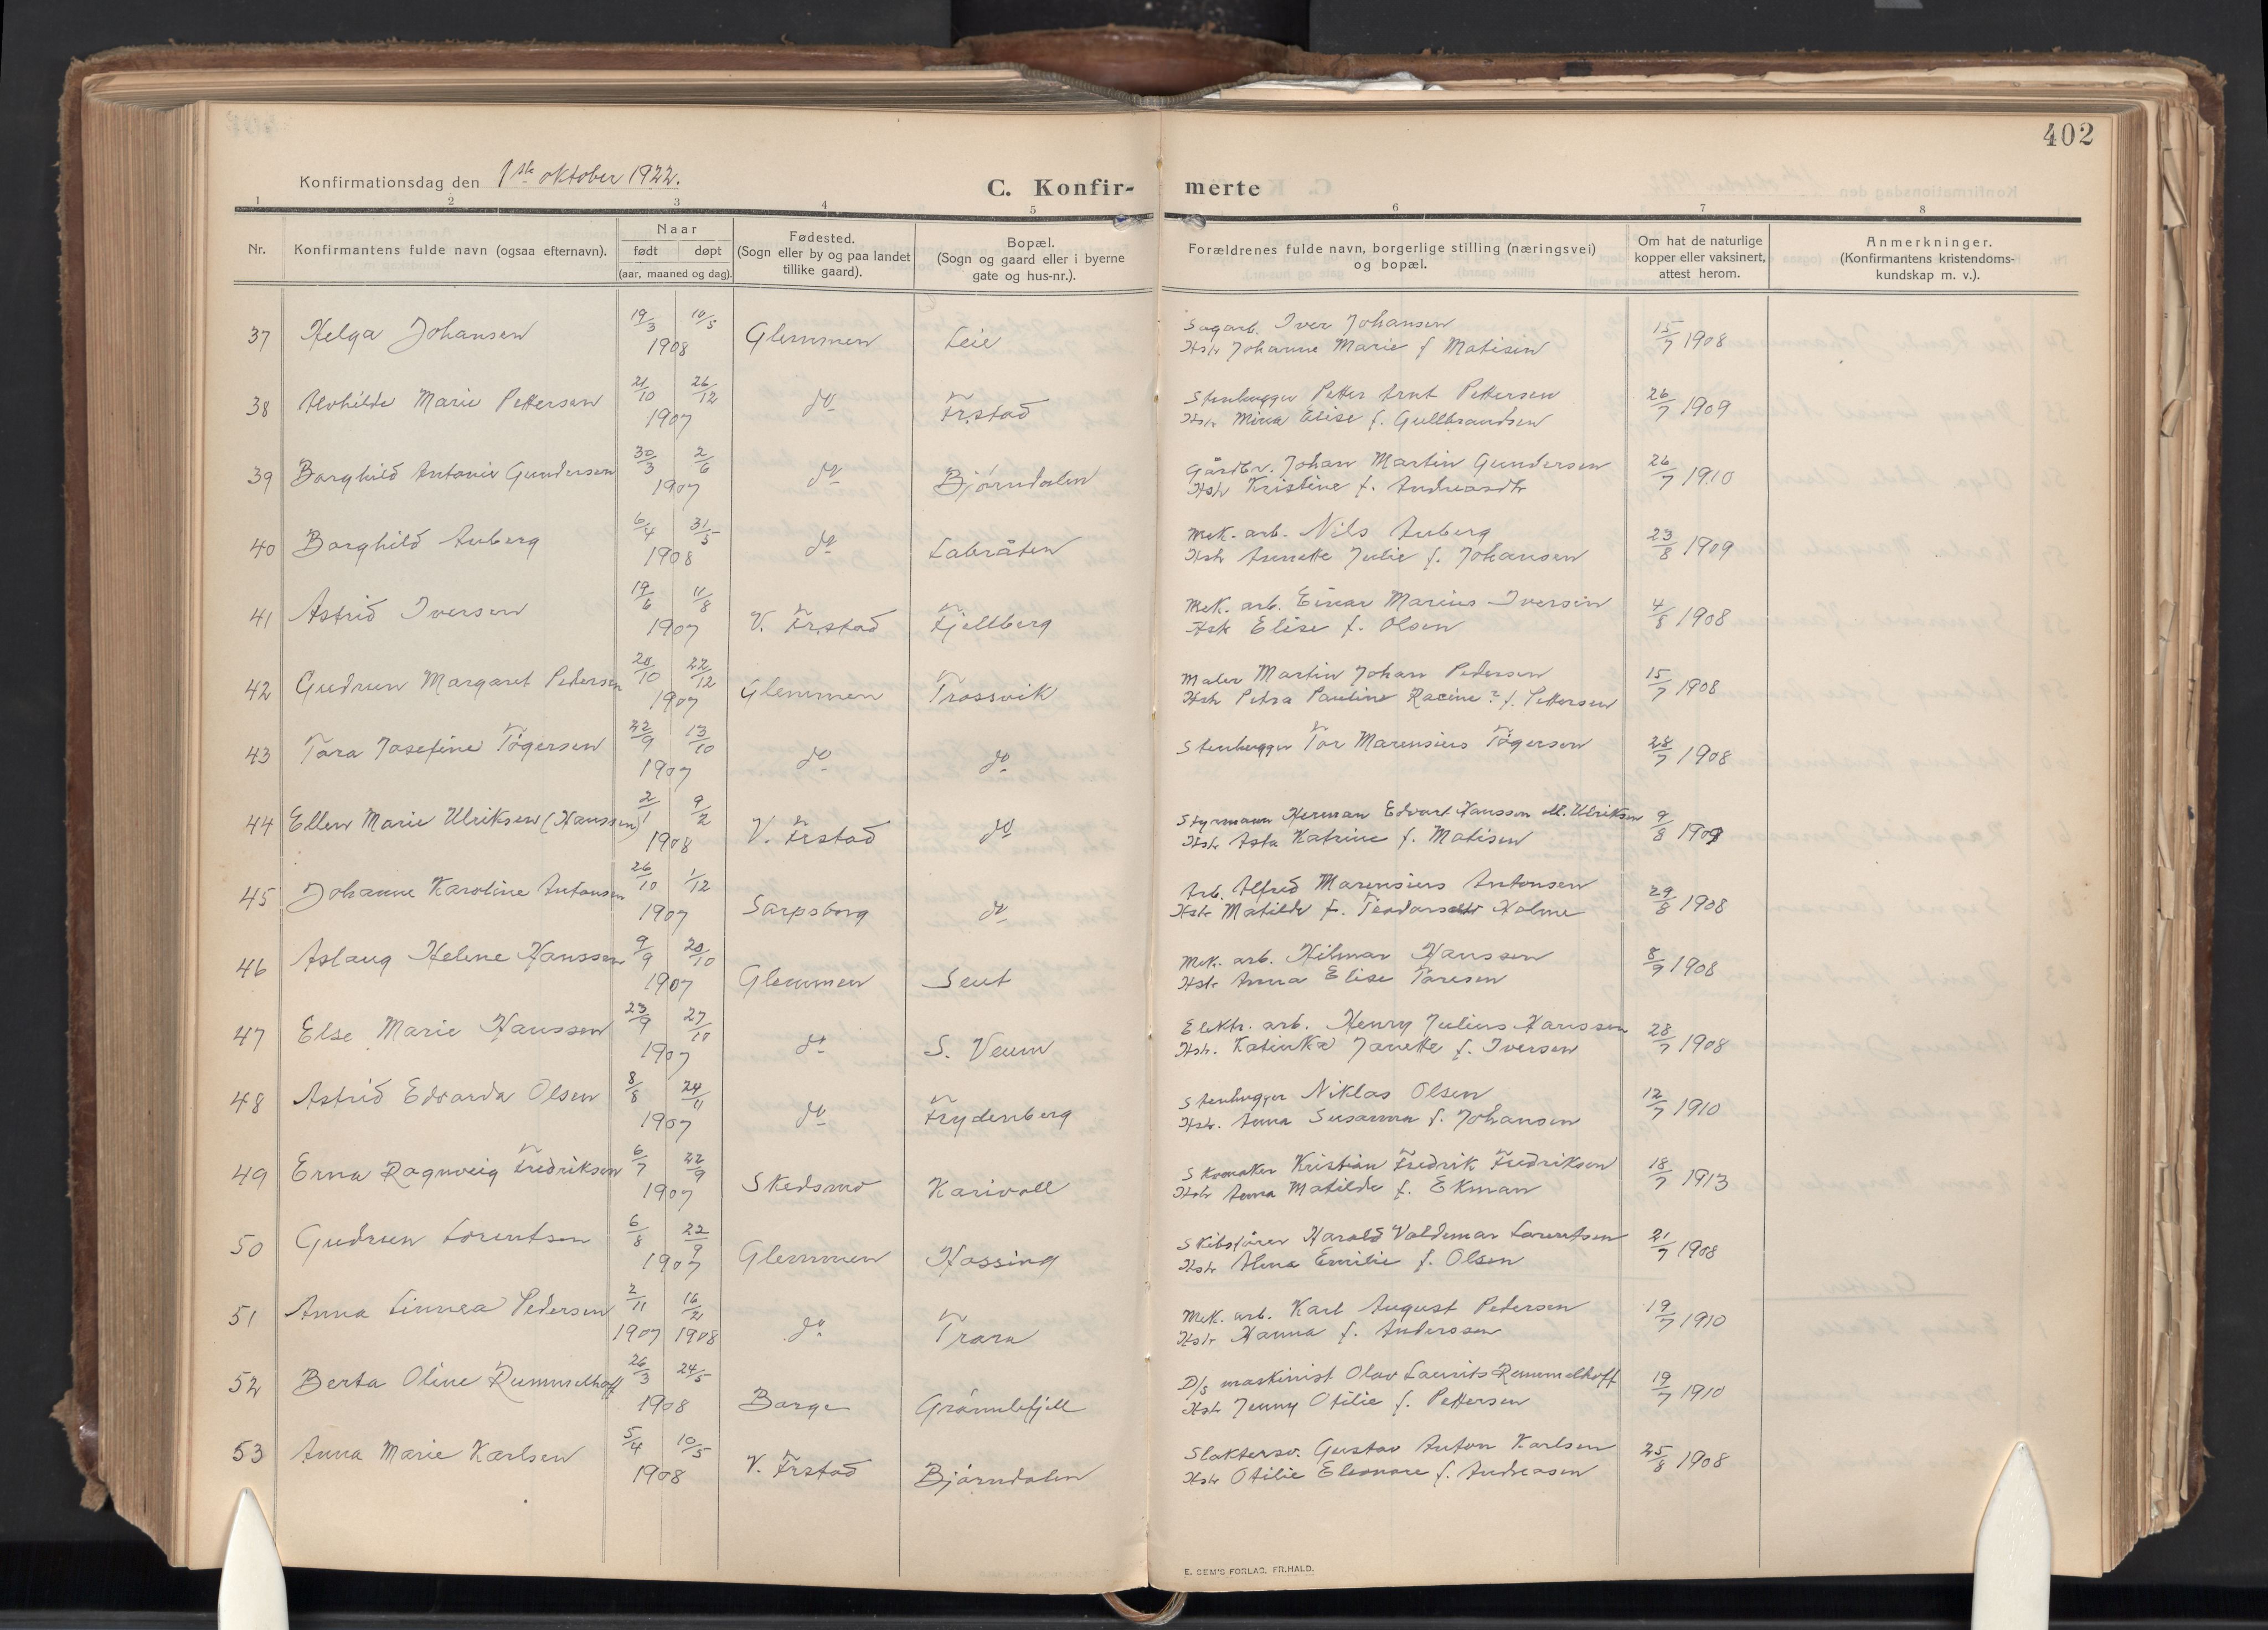 402
Konfirmationsdag den 1ste oktober 1922.
C. Konfir- merte
1 2 3 4 5 6 7 8
Nr. Konfirmantens fulde navn (ogsaa efternavn). Naar født døpt (aar, maaned og dag). Fødested. (Sogn eller by og paa landet tillike gaard). Bopæl. (Sogn og gaard eller i byerne gate og hus-nr.). Forældrenes fulde navn, borgerlige stilling (næringsvei) og bopæl. Om hat de naturlige kopper eller vaksinert, attest herom. Anmerkninger. (Konfirmantens kristendoms- kundskap m. v.).
37 Helga Johansen 19/3 10/5 1908 Glemmen Leie Sagarb. Iver Johansen
Hstr Johanne Marie f Matisen 15/7 1908
38 Alvhilde Marie Pettersen 21/10 26/12 1907 do Fr.stad Stenhugger Petter Arnt Pettersen
Hstr Mina Elise f. Gullbrandsen 26/7 1909
39 Borghild Antonie Gundersen 30/3 2/6 1907 do Bjørndalen Gårdbr. Johan Martin Gundersen
Hstr Kristine f. Andreasdtr 26/7 1910
40 Borghild Auberg 6/4 31/5 1908 do Labråten Mek. arb. Nils Auberg
Hstr Annette Julie f. Johansen 23/8 1909
41 Astrid Iversen 19/6 11/8 1907 V. Fr.stad Fjellberg Mek. arb. Einar Marius Iversen
Hstr Elise f. Olsen 4/8 1908
42 Gudrun Margaret Pedersen 28/10 22/12 1907 Glemmen Trossvik Maler Martin Johan Pedersen
Hstr Petra Pauline Racine? f. Pettersen 15/7 1908
43 Tora Josefine Tøgersen 22/9 13/10 1907 do do Stenhugger Tor Marensius Tøgersen 28/7 1908
44 Ellen Marie Ulriksen (Hanssen) 2/1 9/2 1908 V. Frstad do Styrmann Herman Edvart Hanssen ell. Ulriksen
Hstr Asta Katrine f. Matisen 9/8 1909
45 Johanne Karoline Antonsen 26/10 1/12 1907 Sarpsborg do Arb. Alfred Marensius Antonsen
Hstr Matilde f. Teodorsdtr Holme 29/8 1908
46 Aslaug Helene Hanssen 9/9 20/10 1907 Glemmen Seut Mek. arb. Hilmar Hanssen
Hstr Anna Elise Toresen 8/9 1908
47 Else Marie Hanssen 23/9 27/10 1907 do S. Veum Elektr. arb. Henry Julius Hanssen
Hstr. Katinka Janette f. Iversen 28/7 1908
48 Astrid Edvarda Olsen 8/8 24/11 1907 do Frydenberg Stenhugger Niklas Olsen
Hstr. Anna Susanna f. Johansen 12/7 1910
49 Erna Ragnveig Fredriksen 6/7 22/9 1907 Skedsmo Karivoll Skomaker Kristian Fredrik Fredriksen
Hstr Anna Matilde f. Ekman 18/7 1913
50 Gudrun Lorentsen 6/8 22/9 1907 Glemmen Hassing Skibsfører Harald Valdemar Lorentsen
Hstr Alma Emilie f. Olsen 21/7 1908
51 Anna Linnea Pedersen 2/11 1907 16/2 1908 do Trara Mek. arb. Karl August Pedersen
Hstr Hanna f. Andersson 19/7 1910
52 Berta Oline Rummelhoff 26/3 24/5 1908 Borge Grønnlifjell D/s maskinist Olav Laurits Rummelhoff
Hstr Jenny Otilie f. Pettersen 19/7 1910
53 Anna Marie Karlsen 5/4 10/5 1908 V. Frstad Bjørndalen Slaktersv. Gustav Anton Karlsen
Hstr Otilie Eleonore f. Andreasen 25/8 1908
E. SEM'S FORLAG. FR.HALD.